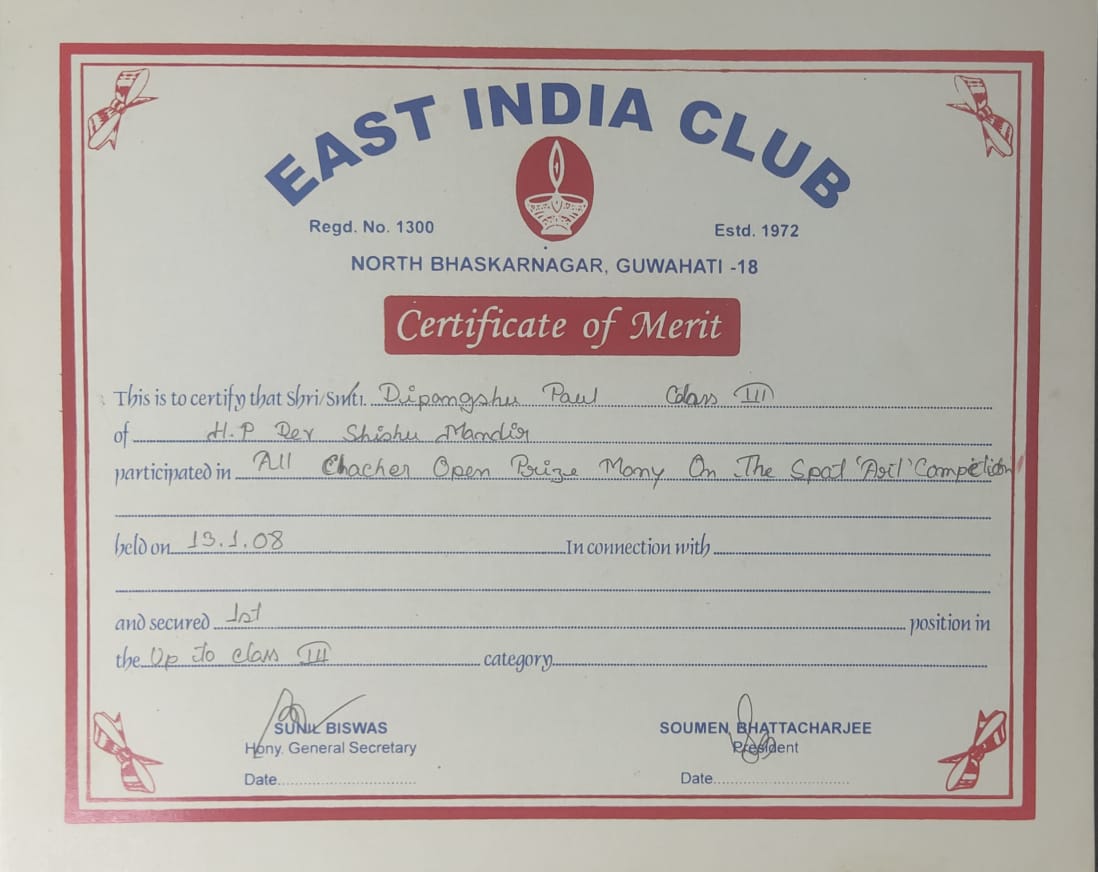 EAST INDIA CLUB
Regd. No. 1300 Estd. 1972
NORTH BHASKARNAGAR, GUWAHATI -18
Certificate of Merit
This is to certify that Shri/Smti. Dipangshu Paul Class III
of H.P Dev Shishu Mandir
participated in All Chacher Open Prize Mony On The Spot 'Art' Competition
held on 13.1.08 In connection with
and secured 1st position in
the Up to class III category
SUNIL BISWAS SOUMEN BHATTACHARJEE
Hony. General Secretary President
Date Date